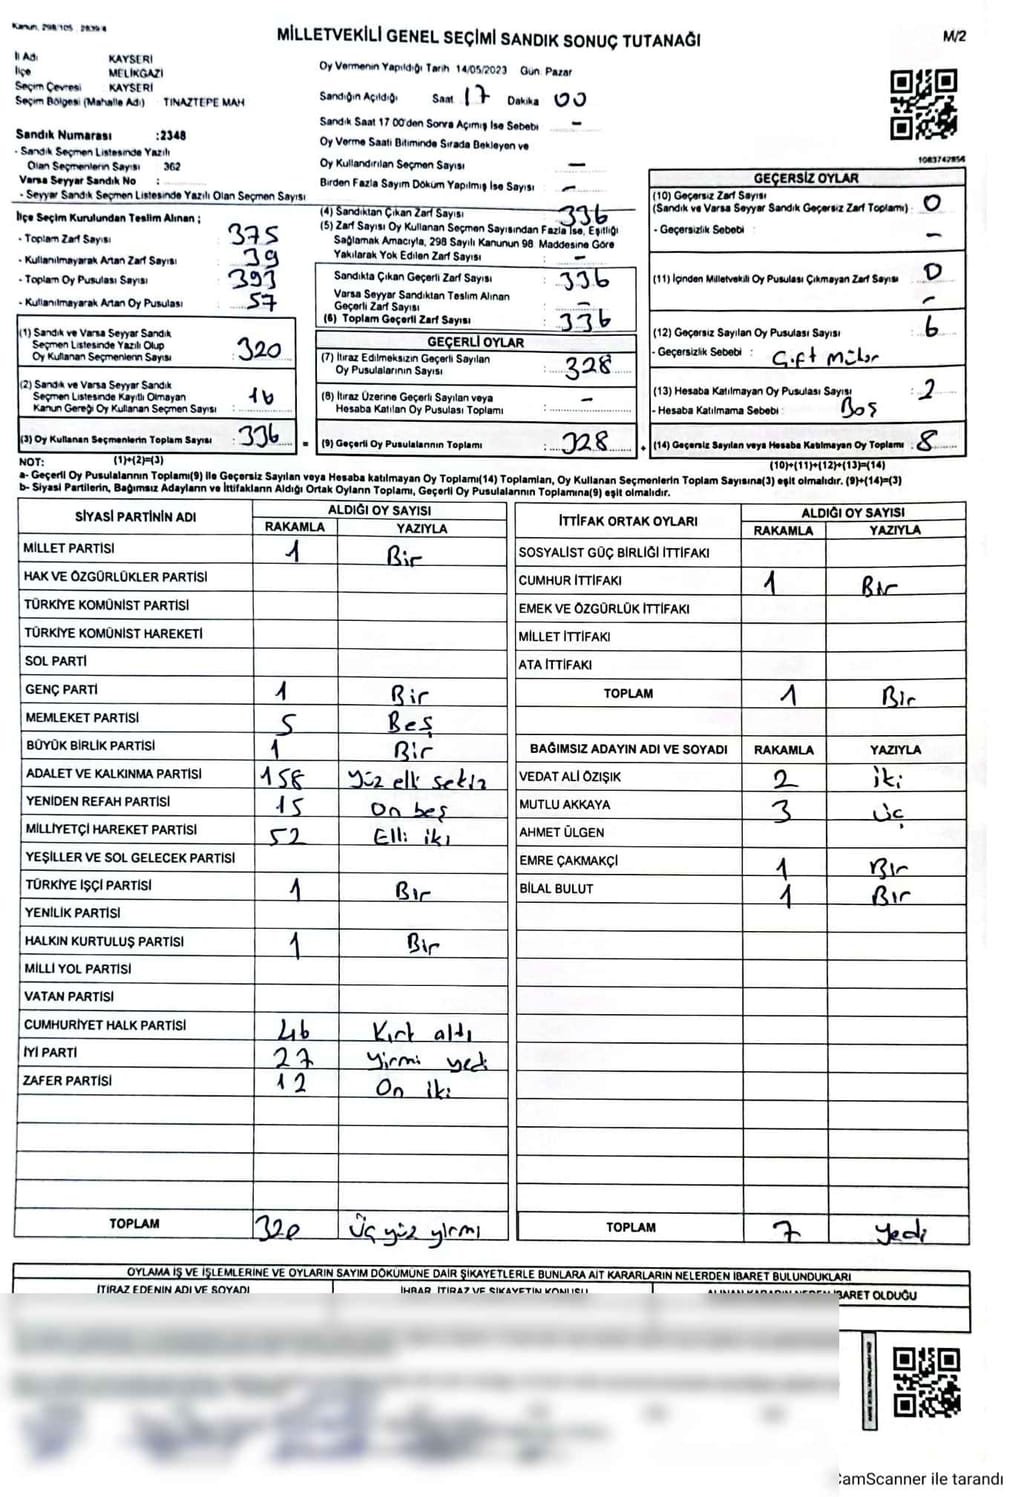 Kanun, 298/105 2839/4
MİLLETVEKİLİ GENEL SEÇİMİ SANDIK SONUÇ TUTANAĞI
M/2
İl Adı KAYSERİ
İlçe MELİKGAZİ
Seçim Çevresi KAYSERİ
Seçim Bölgesi (Mahalle Adı) TINAZTEPE MAH
Sandık Numarası :2348
- Sandık Seçmen Listesinde Yazılı
Olan Seçmenlerin Sayısı 362
Varsa Seyyar Sandık No :
- Seyyar Sandık Seçmen Listesinde Yazılı Olan Seçmen Sayısı
Oy Vermenin Yapıldığı Tarih 14/05/2023 Gün. Pazar
Sandığın Açıldığı Saat 17 Dakika 00
Sandık Saat 17 00'den Sonra Açımış İse Sebebi -
Oy Verme Saati Bitiminde Sırada Bekleyen ve
Oy Kullandırılan Seçmen Sayısı -
Birden Fazla Sayım Döküm Yapılmış İse Sayısı -
1083742856
İlçe Seçim Kurulundan Teslim Alınan ;
- Toplam Zarf Sayısı 375
- Kullanılmayarak Artan Zarf Sayısı 39
- Toplam Oy Pusulası Sayısı 393
- Kullanılmayarak Artan Oy Pusulası 57
(1) Sandık ve Varsa Seyyar Sandık
Seçmen Listesinde Yazılı Olup
Oy Kullanan Seçmenlerin Sayısı 320
(2) Sandık ve Varsa Seyyar Sandık
Seçmen Listesinde Kayıtlı Olmayan
Kanun Gereği Oy Kullanan Seçmen Sayısı : 16
(3) Oy Kullanan Seçmenlerin Toplam Sayısı : 336
(4) Sandıktan Çıkan Zarf Sayısı : 336
(5) Zarf Sayısı Oy Kullanan Seçmen Sayısından Fazla İse, Eşitliği
Sağlamak Amacıyla, 298 Sayılı Kanunun 98 Maddesine Göre
Yakılarak Yok Edilen Zarf Sayısı : -
Sandıkta Çıkan Geçerli Zarf Sayısı : 336
Varsa Seyyar Sandıktan Teslim Alınan
Geçerli Zarf Sayısı : -
(6) Toplam Geçerli Zarf Sayısı : 336
GEÇERLİ OYLAR
(7) İtiraz Edilmeksizin Geçerli Sayılan
Oy Pusulalarının Sayısı : 328
(8) İtiraz Üzerine Geçerli Sayılan veya
Hesaba Katılan Oy Pusulası Toplamı : -
(9) Geçerli Oy Pusulalarının Toplamı : 328
GEÇERSİZ OYLAR
(10) Geçersiz Zarf Sayısı
(Sandık ve Varsa Seyyar Sandık Geçersiz Zarf Toplamı) : 0
- Geçersizlik Sebebi : -
(11) İçinden Milletvekili Oy Pusulası Çıkmayan Zarf Sayısı : 0
-
(12) Geçersiz Sayılan Oy Pusulası Sayısı : 6
- Geçersizlik Sebebi : Çift Mühür
(13) Hesaba Katılmayan Oy Pusulası Sayısı : 2
- Hesaba Katılmama Sebebi : Boş
(14) Geçersiz Sayılan veya Hesaba Katılmayan Oy Toplamı : 8
NOT: (1)+(2)=(3)
(10)+(11)+(12)+(13)=(14)
a- Geçerli Oy Pusulalarının Toplamı(9) ile Geçersiz Sayılan veya Hesaba katılmayan Oy Toplamı(14) Toplamları, Oy Kullanan Seçmenlerin Toplam Sayısına(3) eşit olmalıdır. (9)+(14)=(3)
b- Siyasi Partilerin, Bağımsız Adayların ve İttifakların Aldığı Ortak Oyların Toplamı, Geçerli Oy Pusulalarının Toplamına(9) eşit olmalıdır.
SİYASİ PARTİNİN ADI ALDIĞI OY SAYISI
RAKAMLA YAZIYLA
MİLLET PARTİSİ 1 Bir
HAK VE ÖZGÜRLÜKLER PARTİSİ
TÜRKİYE KOMÜNİST PARTİSİ
TÜRKİYE KOMÜNİST HAREKETİ
SOL PARTİ
GENÇ PARTİ 1 Bir
MEMLEKET PARTİSİ 5 Beş
BÜYÜK BİRLİK PARTİSİ 1 Bir
ADALET VE KALKINMA PARTİSİ 158 Yüz elli sekiz
YENİDEN REFAH PARTİSİ 15 On beş
MİLLİYETÇİ HAREKET PARTİSİ 52 Elli iki
YEŞİLLER VE SOL GELECEK PARTİSİ
TÜRKİYE İŞÇİ PARTİSİ 1 Bir
YENİLİK PARTİSİ
HALKIN KURTULUŞ PARTİSİ 1 Bir
MİLLİ YOL PARTİSİ
VATAN PARTİSİ
CUMHURİYET HALK PARTİSİ 46 Kırk altı
İYİ PARTİ 27 Yirmi yedi
ZAFER PARTİSİ 12 On iki
TOPLAM 320 Üç yüz yirmi
İTTİFAK ORTAK OYLARI ALDIĞI OY SAYISI
RAKAMLA YAZIYLA
SOSYALİST GÜÇ BİRLİĞİ İTTİFAKI
CUMHUR İTTİFAKI 1 Bir
EMEK VE ÖZGÜRLÜK İTTİFAKI
MİLLET İTTİFAKI
ATA İTTİFAKI
TOPLAM 1 Bir
BAĞIMSIZ ADAYIN ADI VE SOYADI RAKAMLA YAZIYLA
VEDAT ALİ ÖZIŞIK 2 iki
MUTLU AKKAYA 3 üç
AHMET ÜLGEN
EMRE ÇAKMAKÇİ 1 Bir
BİLAL BULUT 1 Bir
TOPLAM 7 Yedi
OYLAMA İŞ VE İŞLEMLERİNE VE OYLARIN SAYIM DÖKÜMÜNE DAİR ŞİKAYETLERLE BUNLARA AİT KARARLARIN NELERDEN İBARET BULUNDUKLARI
İTİRAZ EDENİN ADI VE SOYADI İHBAR, İTİRAZ VE ŞİKAYETİN KONUSU BARET OLDUĞU
CamScanner ile tarandı